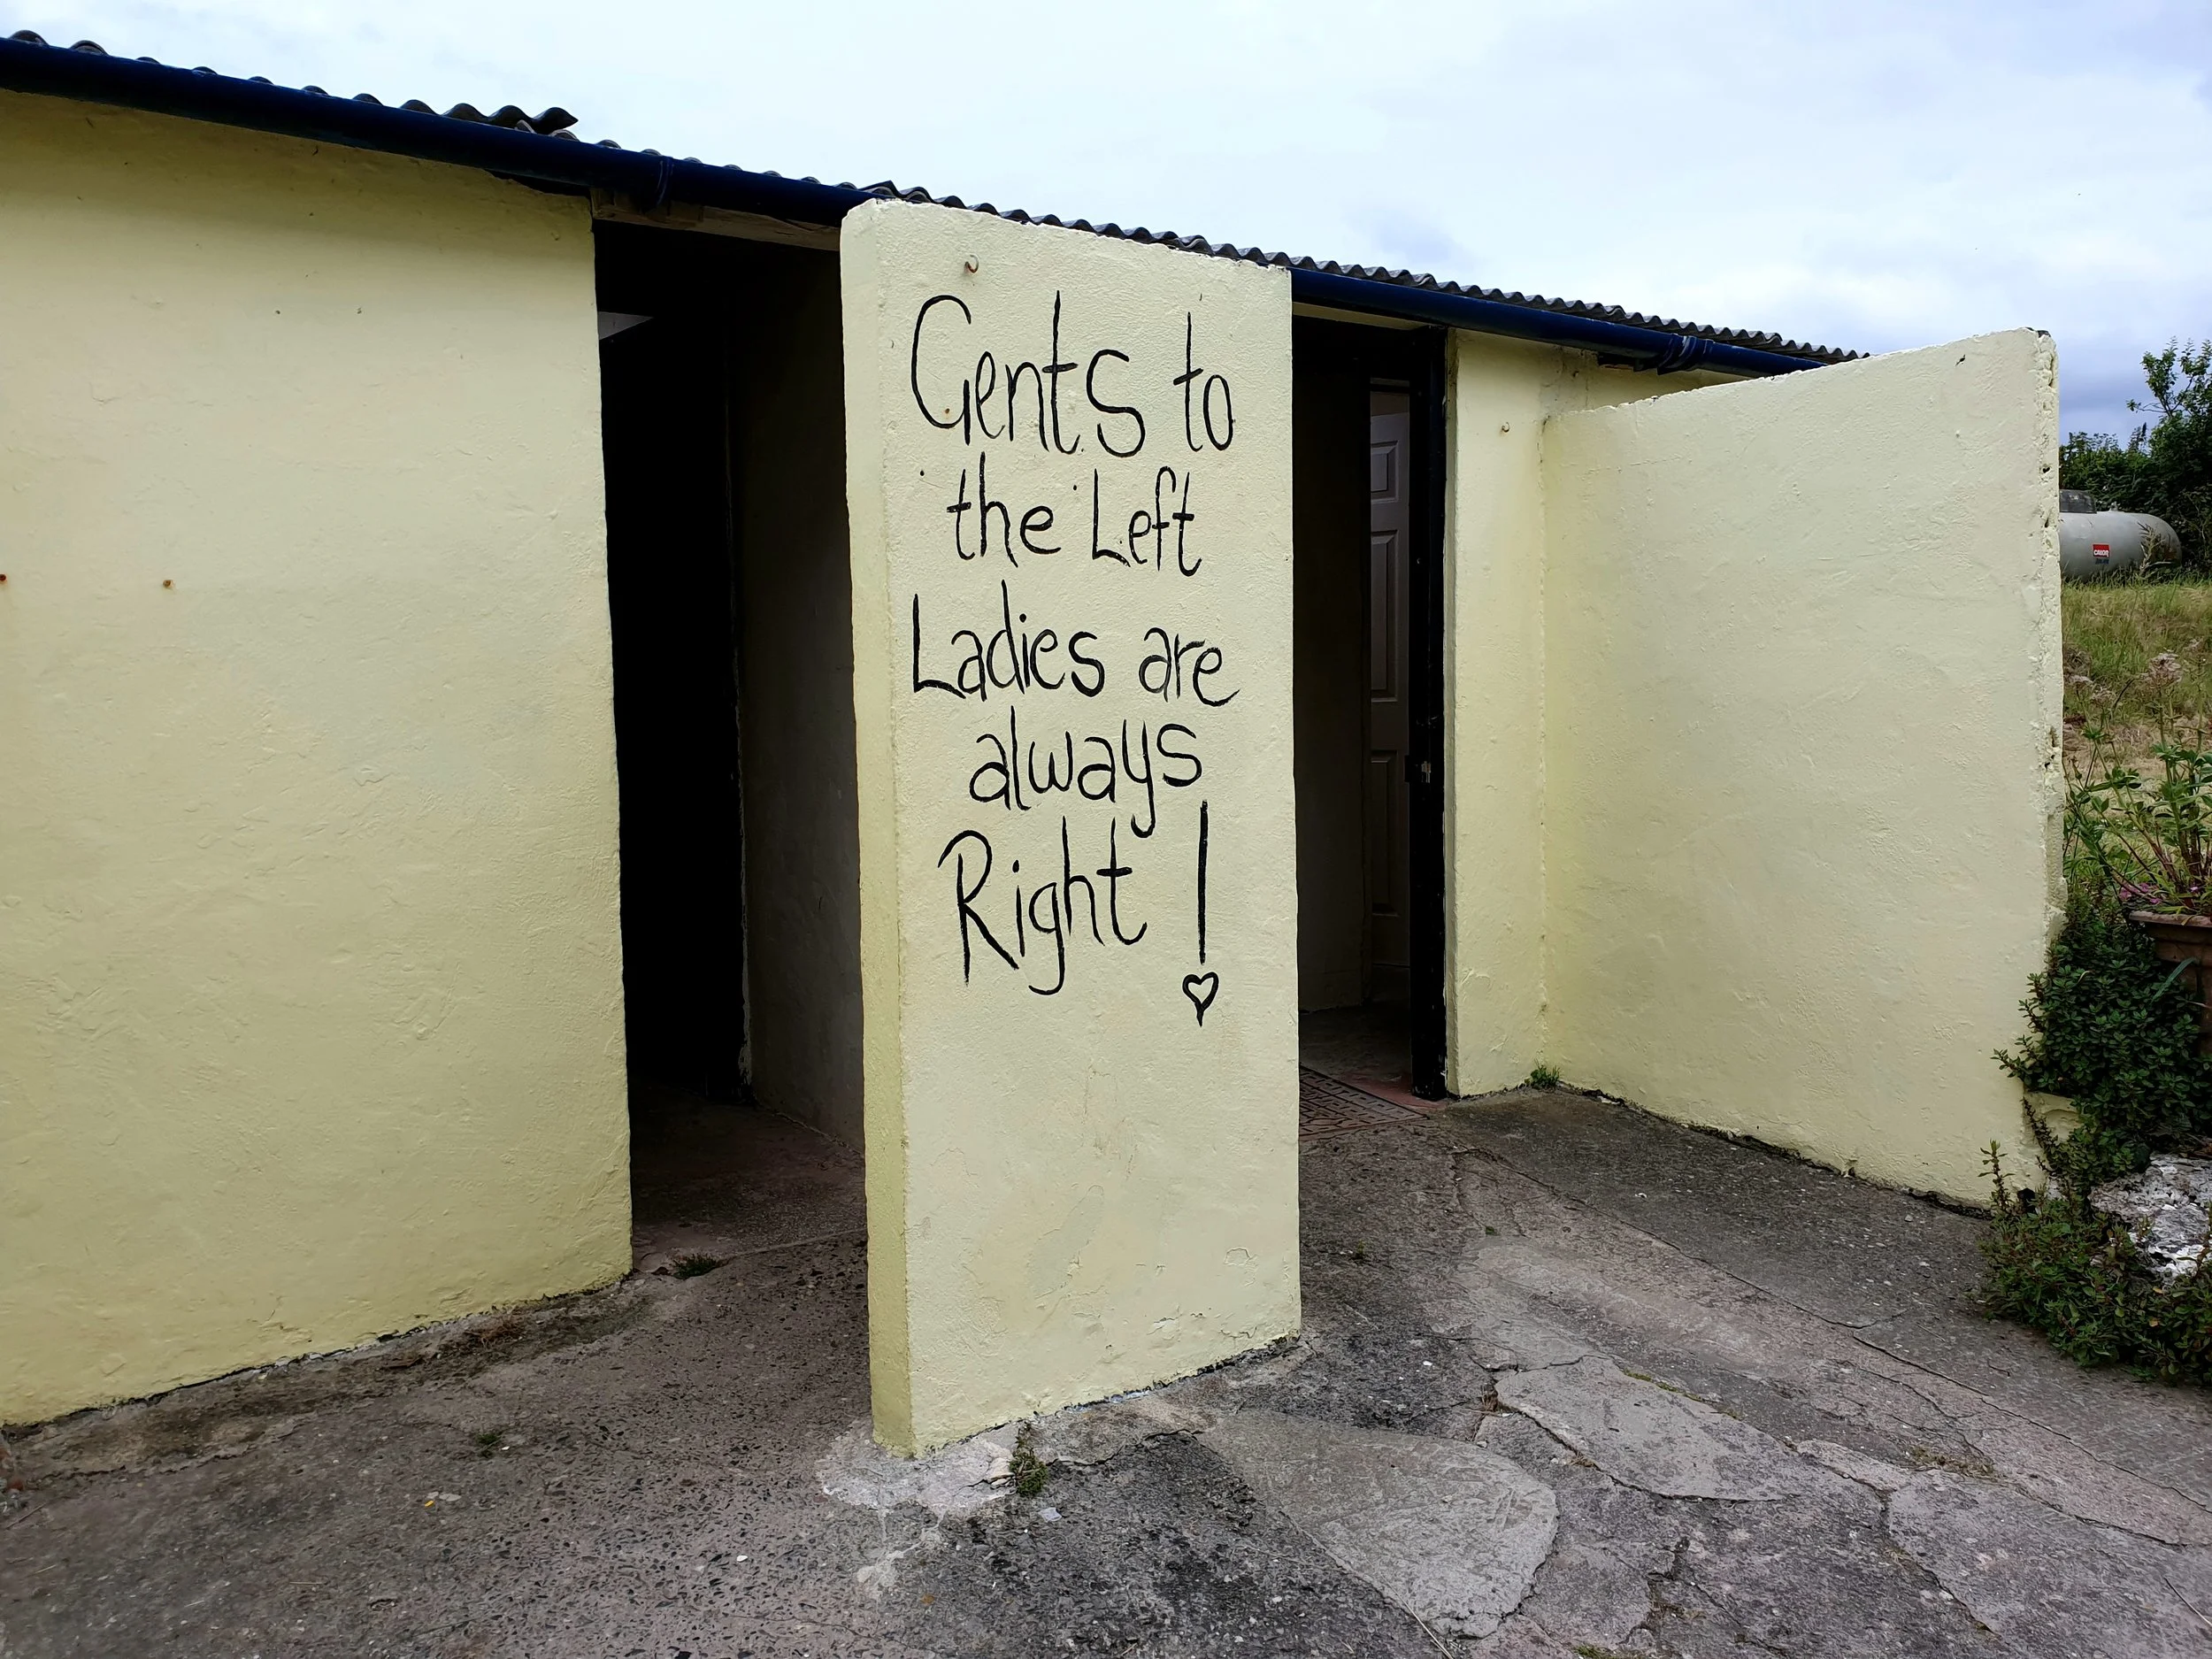 Gents to
the Left
Ladies are
always
Right !
calor